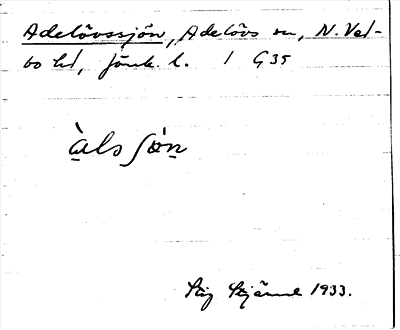 Adelövssjön, Adelövs sn, N. Ved-
bo hd, Jönk. l. 1 G35
àls ſȯn
Stig Stjärne 1933.